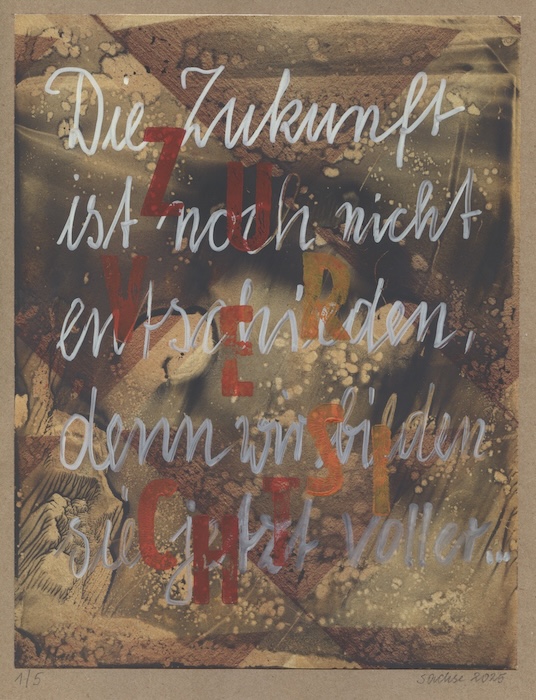 Die Zukunft
ist noch nicht
entschieden,
denn wir bilden
sie jetzt voller...
ZU
VER
E
SI
CHT
1/5
Sachse 2025